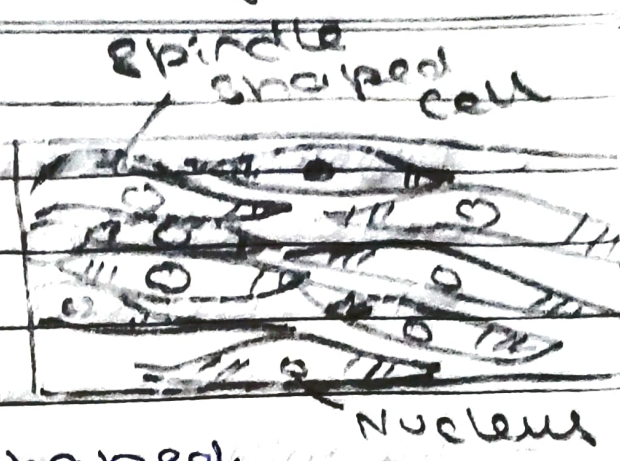 Spindle
shaped
cell
Nucleus